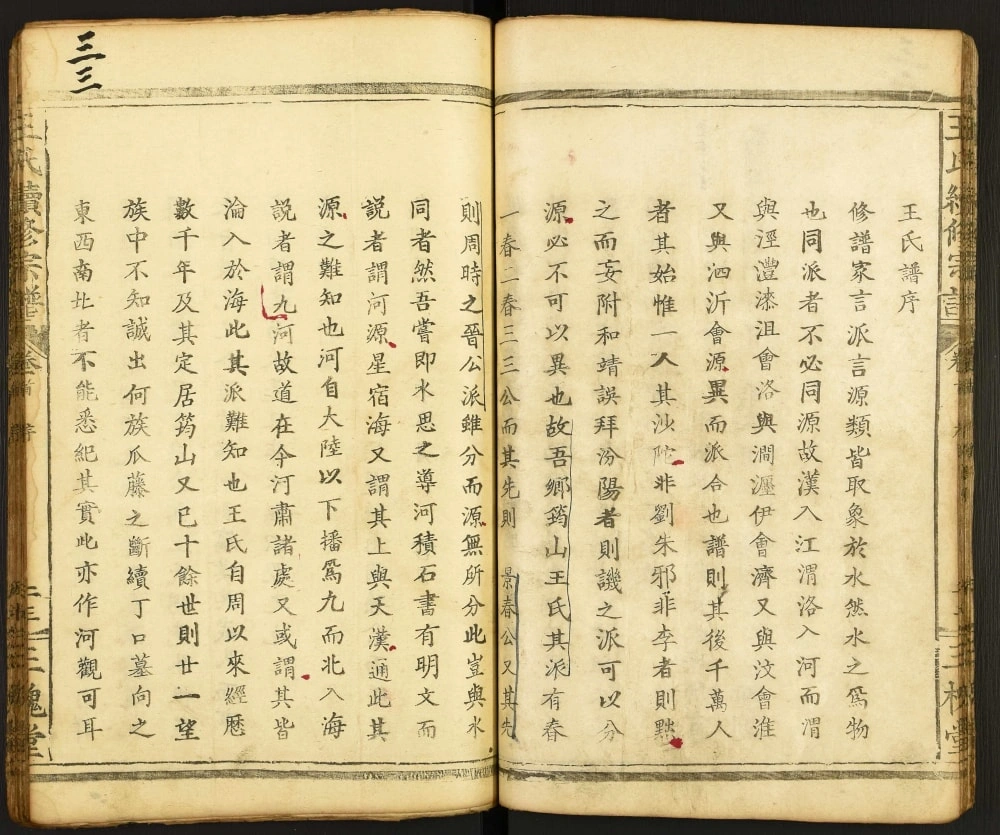 王氏譜序
修譜家言派言源類皆取象於水然水之爲物
也同派者不必同源故漢入江渭洛入河而渭
與涇灃漆沮會洛與澗瀍伊會濟又與汶會淮
又與泗沂會源異而派合也譜則其後千萬人
者其始惟一人其沙陀非劉朱邪非李者則黜
之而妄附和靖誤拜汾陽者則譏之派可以分
源必不可以異也故吾鄉筠山王氏其派有春
一春二春三三公而其先則 景春公又其先
則周時之晉公派雖分而源無所分此豈與水
同者然吾嘗即水思之導河積石書有明文而
説者謂河源星宿海又謂其上與天漢通此其
源之難知也河自大陸以下播爲九而北入海
説者謂九河故道在今河肅諸處又或謂其皆
淪入於海此其派難知也王氏自周以來經歷
數千年及其定居筠山又已十餘世則廿一望
族中不知誠出何族瓜藤之斷續丁口墓向之
東西南北者不能悉紀其實此亦作河觀可耳
王氏續修宗譜
卷首
三槐堂
三三